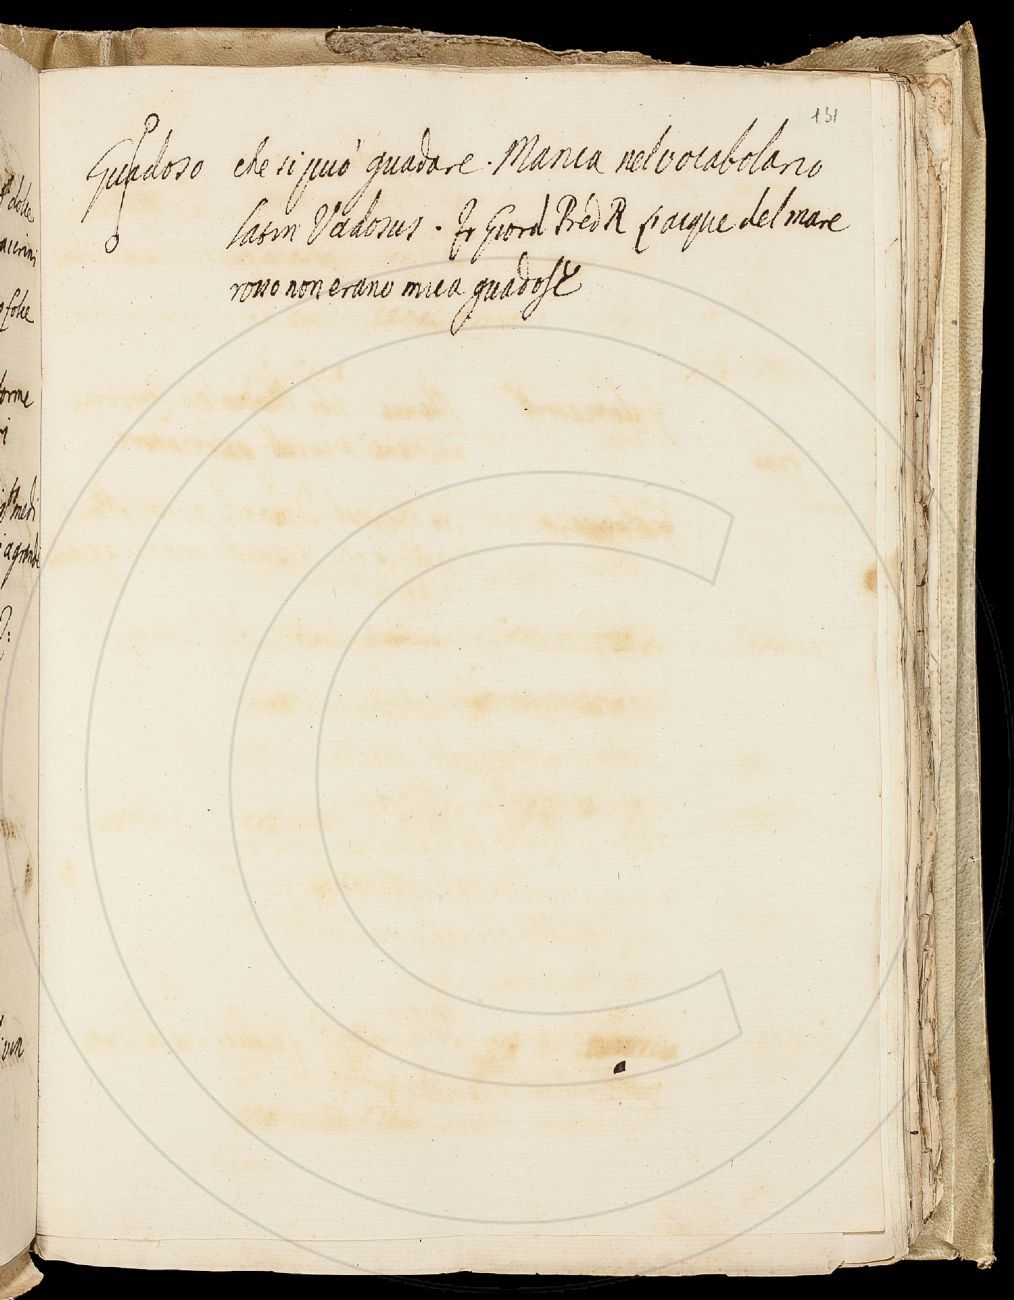 131
Guadoso che si può guadare. Manca nel vocabolario
latin Vadosus. Fr Giord Pred R l'acque del mare
rosso non erano mica guadose